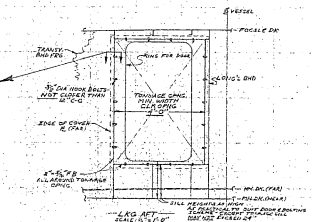 ℄ VESSEL
FOCSLE DK
TRANSV.
BHD FRG
RING FOR DOOR
LONG'L BHD
DIA HOOK BOLTS
NOT CLOSER THAN
12" C-C
TONNAGE OPNG.
MIN. WIDTH
CLR OPNG
EDGE OF COVER
℄ (FAR)
ALL AROUND TONNAGE
OPNG.
MN. DK. (FAR)
MN. DK. (NEAR)
SILL HEIGHT AS HIGH
AS PRACTICAL TO SUIT DOOR & BOLTING
SCHEME - EXCEPT TONNAGE SILL
MAY NOT EXCEED 24"
LKG AFT
SCALE: ½" = 1'-0"